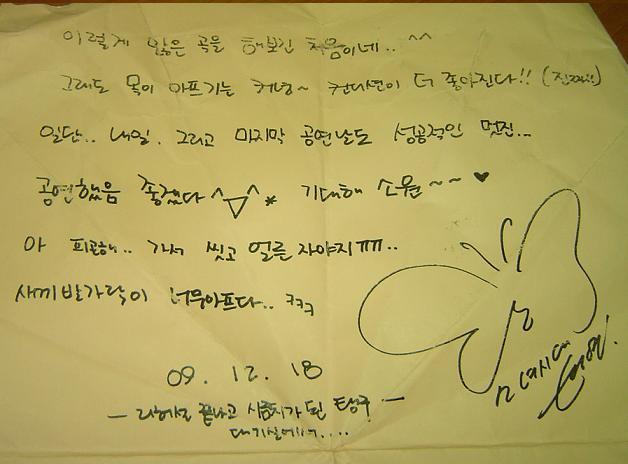 이렇게 많은 곡을 해보긴 처음이네.. ^^
그래도 목이 아프기는 커녕~ 컨디션이 더 좋아진다!! (진짜!!)
일단.. 내일. 그리고 마지막 공연날도 성공적인 멋진...
공연했음 좋겠다 ^▽^* 기대해 소원~~♥
아 피곤해.. 가서 씻고 얼른 자야지ㅠㅠ..
새끼발가락이 너무아프다.. ㅋㅋㅋ
09. 12. 18
- 리허설 끝나고 시체가 된 탱구 -
대기실에서....
소녀시대